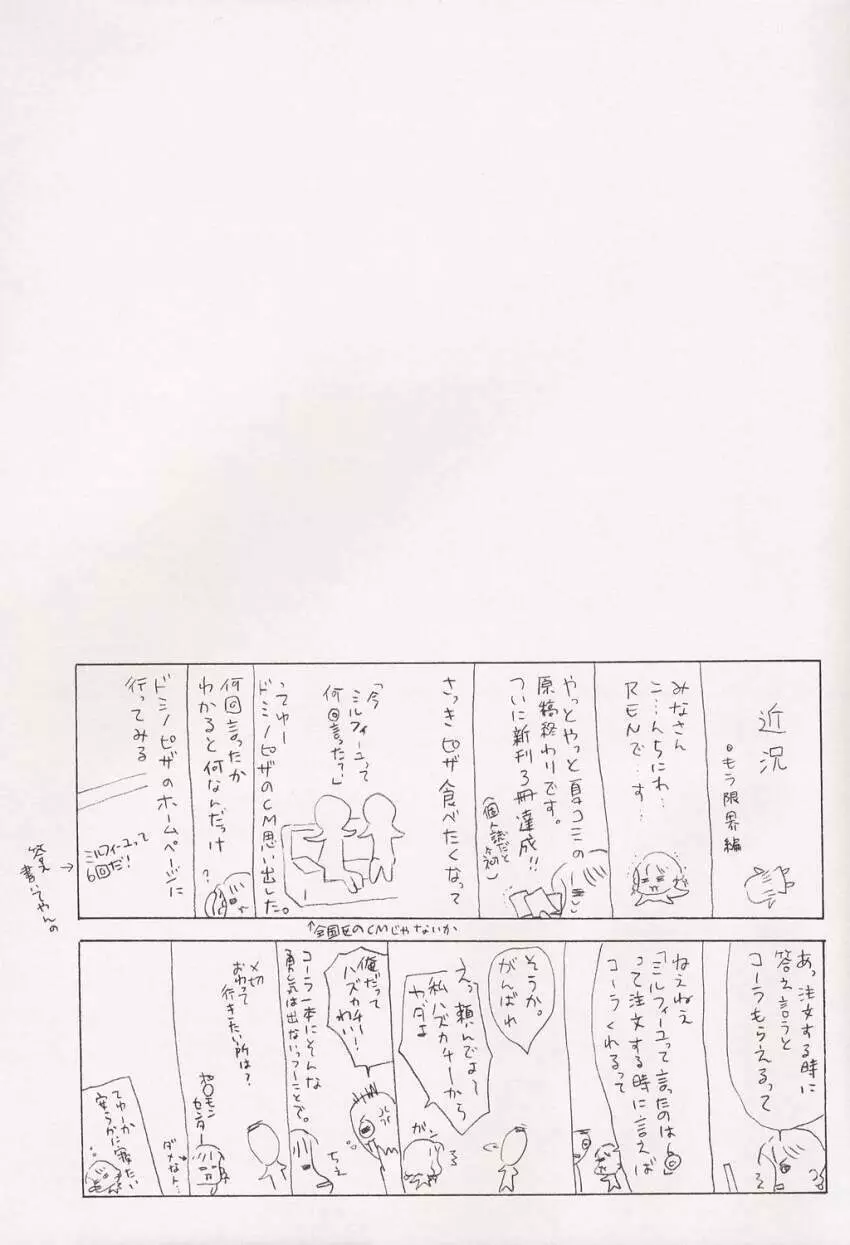 近況
・もう限界編
みなさん
こ…んちにわ…
RENで…す…
やっとやっと夏コミの
原稿終わりです。
ついに新刊3冊達成!!
(個人誌だと
さっきピザ食べたくなって
「今
ミルフィーユって
何回言った?」
ってゆー
ドミノピザのCM思い出した。
↑全国区のCMじゃないか
何回言ったか
わかると何なんだっけ?
ドミノピザのホームページに
行ってみる
ミルフィーユって
6回だ!
答え
書いてやんの
↓
あっ注文する時に
答え言うと
コーラもらえるって
ねえねえ
「ミルフィーユって言ったのは6回」
って注文する時に言えば
コーラくれるって
そうか。
がんばれ
えっ頼んでよ〜
私ハズカチーから
ヤダよ
ガン
俺だって
ハズカチー!
わい!
コーラ一本にそんな
勇気は出ないっつーことで。
ちぇ
〆切
おわって
行きたい所は?
ポ○モン
センター
ダメな人…
てゆーか
安らかに寝たい